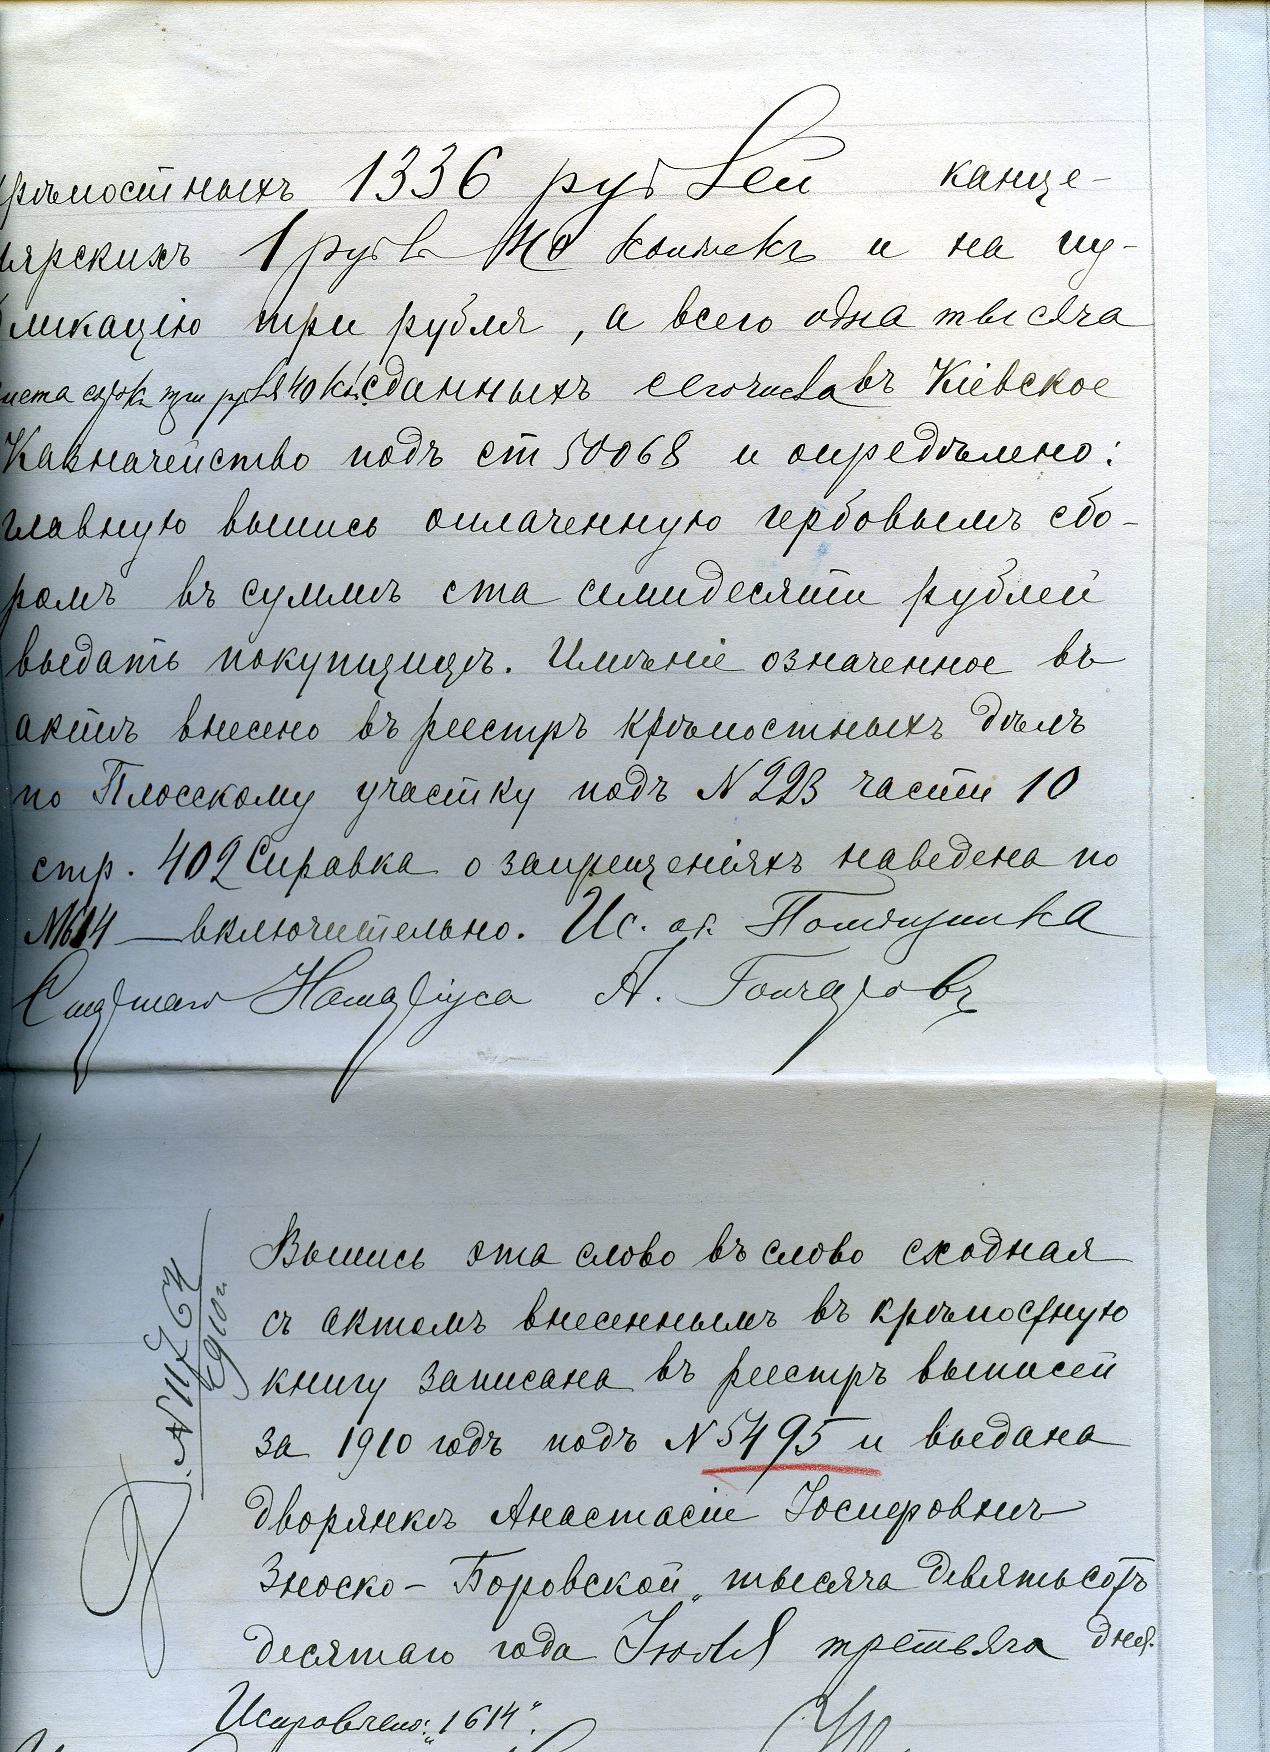 крѣпостныхъ 1336 рублей канце-
лярскихъ 1 рубль 40 копѣекъ и на пу-
бликацію три рубля, а всего одна тысяча
триста сорокъ три рубля 40 коп. сданныхъ сего числа въ Кіевское
Казначейство подъ ст 50068 и опредѣлено:
главную выпись оплаченную гербовымъ сбо-
ромъ въ суммѣ ста семидесяти рублей
выдать покупщицѣ. Имѣніе означенное въ
актѣ внесено въ реестръ крѣпостныхъ дѣлъ
по Плосскому участку подъ N 223 части 10
стр. 402 Справка о запрещеніяхъ наведена по
N 1614 — включительно. Ис. об. Помощника
Старшаго Нотаріуса А. Гончаровъ
Выпись эта слово въ слово сходная
съ актомъ внесеннымъ въ крѣпостную
книгу записана въ реестръ выписей
за 1910 годъ подъ N 5495 и выдана
дворянкѣ Анастасіи Іосифовнѣ
Зноско-Боровской, тысяча девятьсотъ
десятаго года Іюля третьяго дня.
Исправлено: "1614".